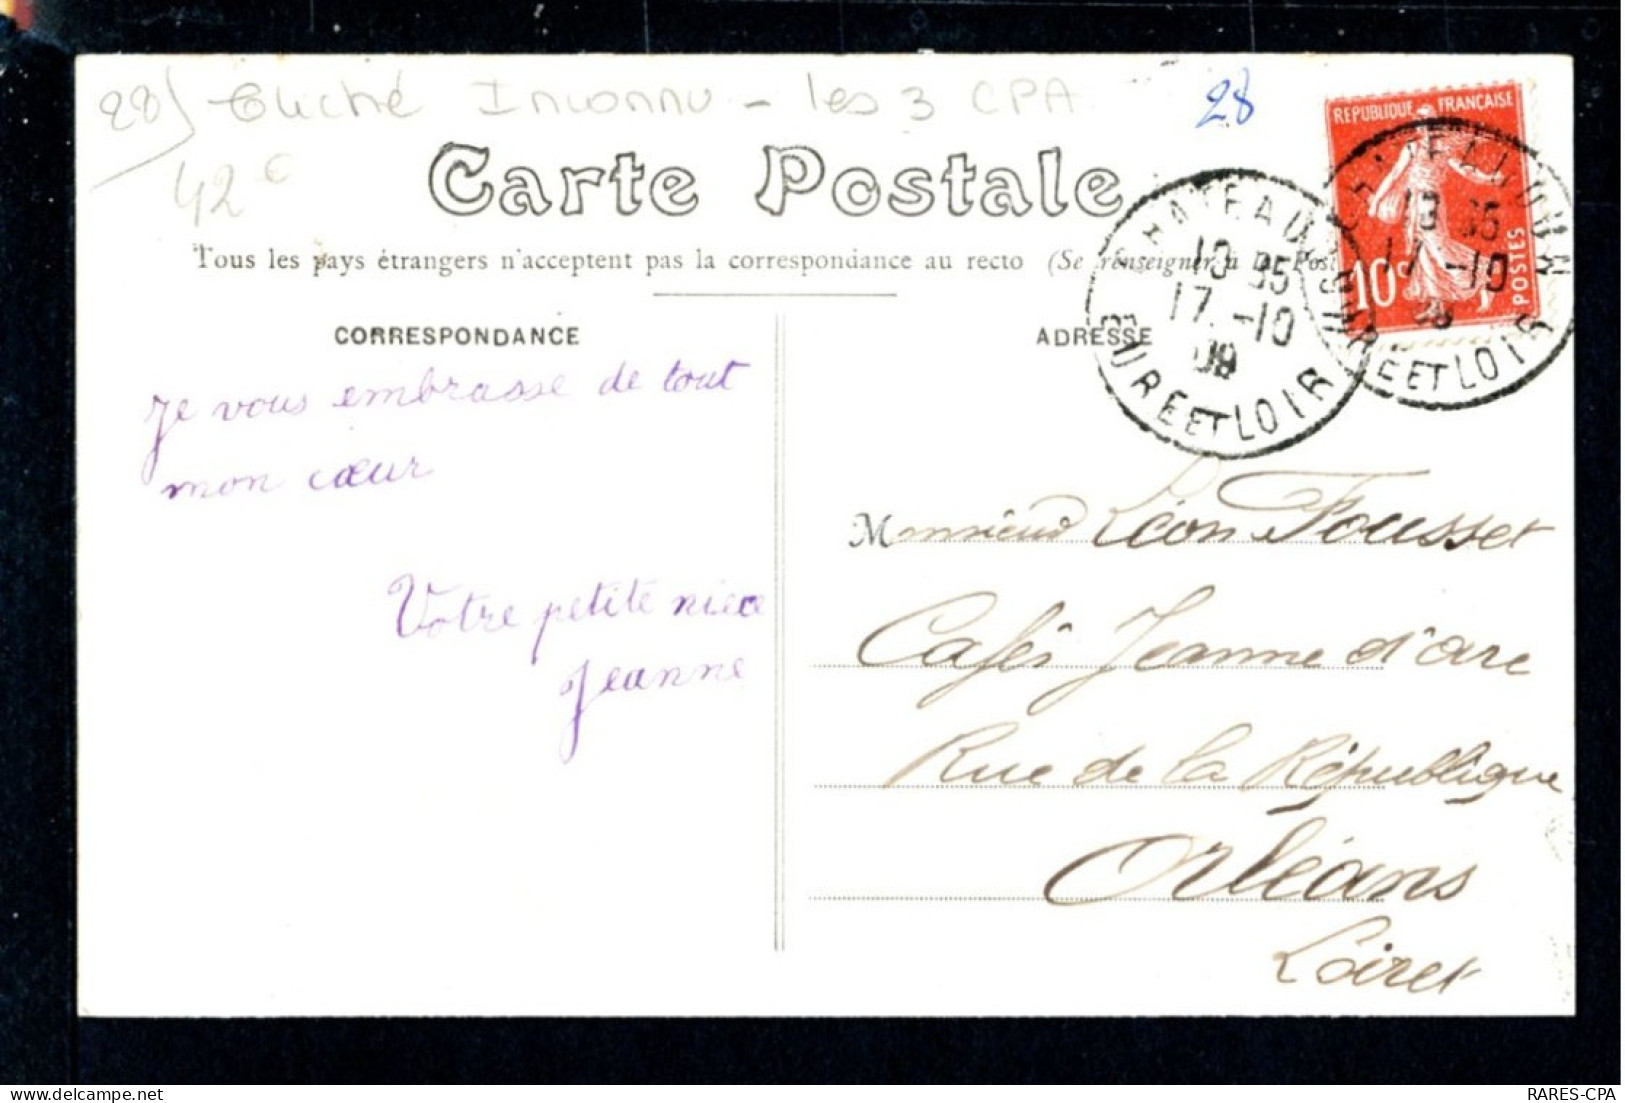 28) Cliché Inconnu - les 3 CPA
28
42€
REPUBLIQUE FRANÇAISE
10c
POSTES
Carte Postale
Tous les pays étrangers n'acceptent pas la correspondance au recto (Se renseigner à la Poste
CHATEAUDUN
13 35
17 -10
09
EURE ET LOIR
CHATEAUDUN
13 35
17 -10
09
EURE ET LOIR
CORRESPONDANCE
je vous embrasse de tout
mon cœur
Votre petite niece
Jeanne
ADRESSE
Monsieur Léon Fousset
Cafés Jeanne d'arc
Rue de la République
Orléans
Loiret
RARES-CPA